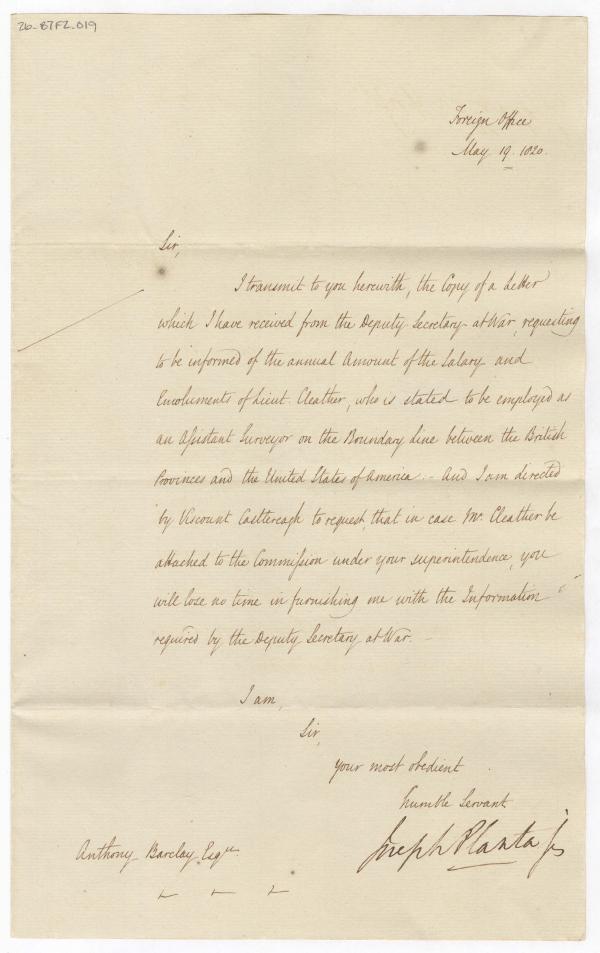 26-87FZ-019
Foreign Office
May 19. 1820.
Sir,
I transmit to you herewith, the Copy of a Letter
which I have received from the Deputy Secretary at War, requesting
to be informed of the annual Amount of the Salary and
Emoluments of Lieut. Cleather, who is stated to be employed as
an Assistant Surveyor on the Boundary Line between the British
Provinces and the United States of America. - And I am directed
by Viscount Castlereagh to request, that in case Mr. Cleather be
attached to the Commission under your superintendence, you
will lose no time in furnishing me with the Information
required by the Deputy Secretary at War. -
I am,
Sir,
your most obedient
humble Servant
Joseph Planta Jr
Anthony Barclay Esqre.